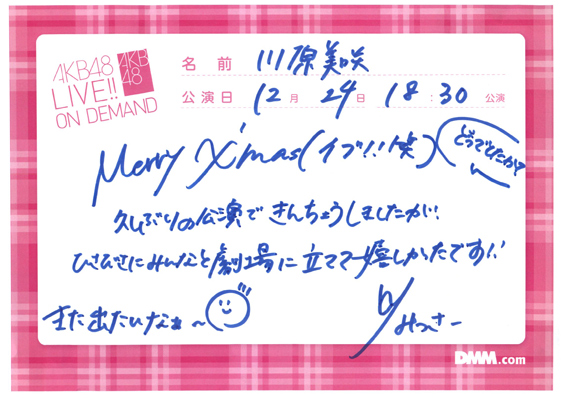 AKB48
LIVE!!
ON DEMAND
AKB
48
名前 川原美咲
公演日 12月 24日 18:30 公演
Merry X'mas(イブ!!笑)
どうでしたか?
久しぶりの公演できんちょうしましたが!
ひさびさにみんなと劇場に立てて嬉しかったです!!
また出たいなぁ～
by
みっさー
DMM.com